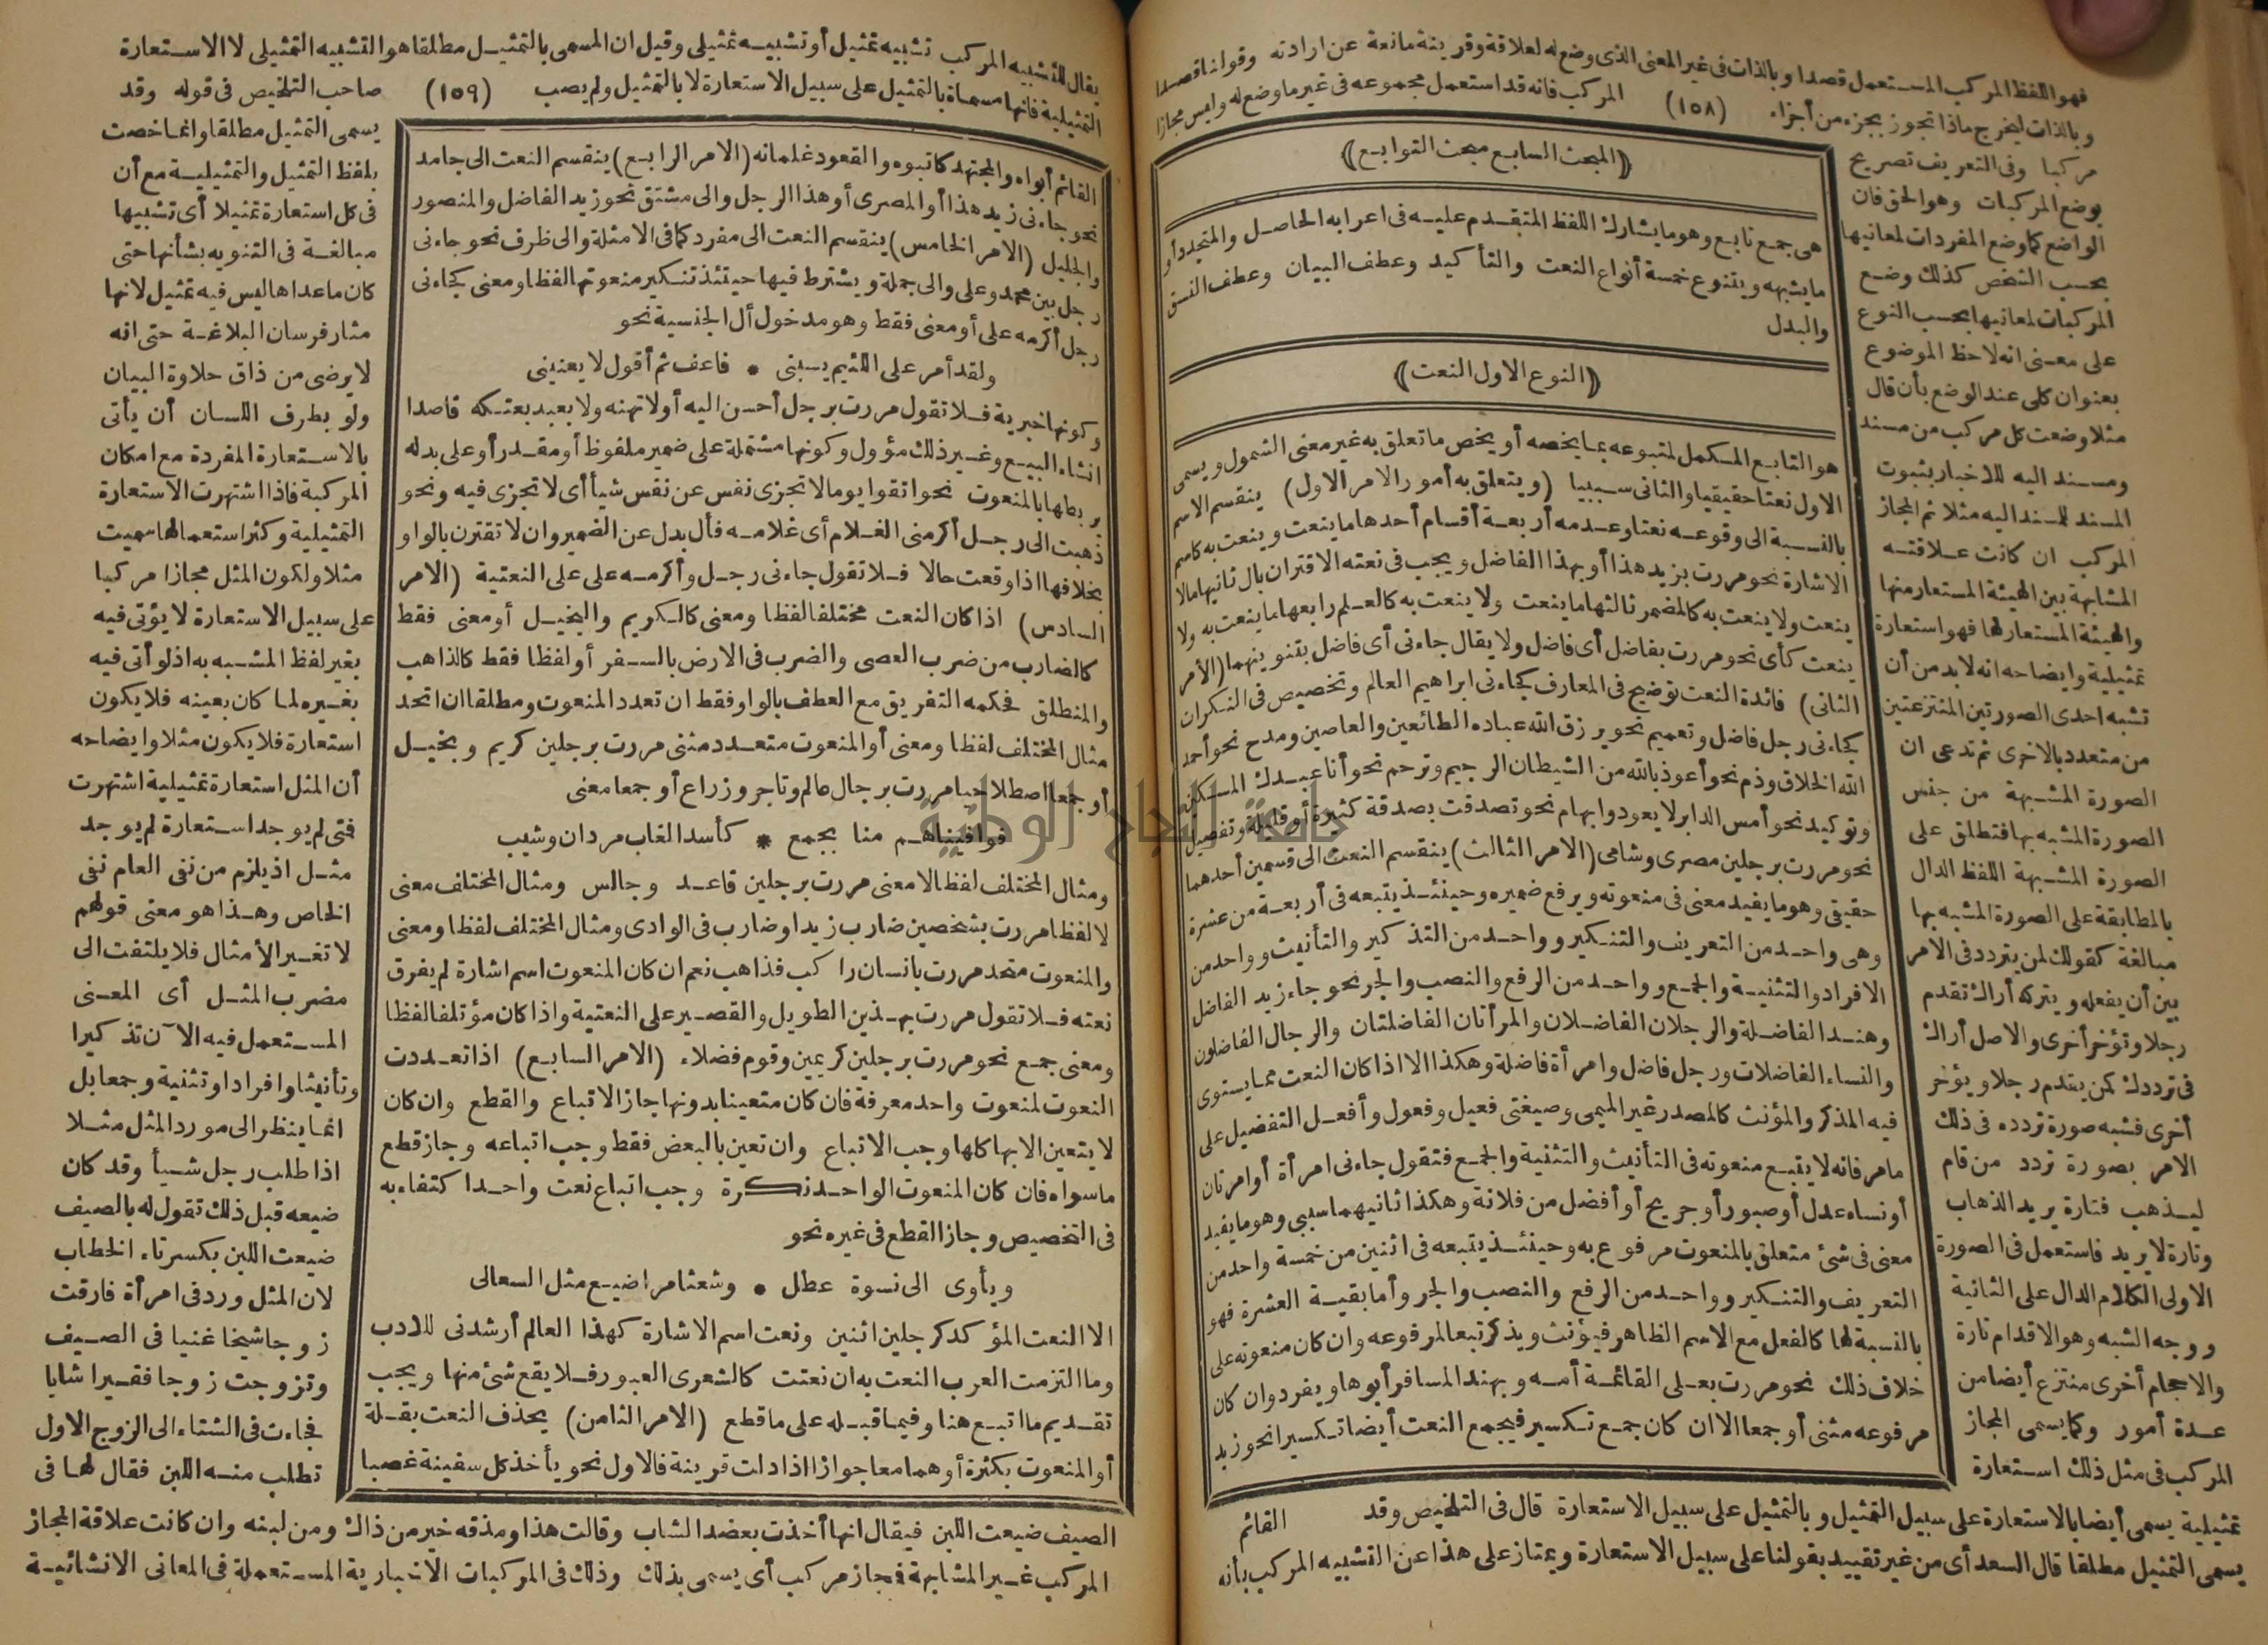 فهو اللفظ المركب المستعمل قصدا وبالذات فى غير المعنى الذى وضع له لعلاقة وقرينة مانعة عن ارادته وقولنا قصدا
وبالذات ليخرج ماذا تجوز بجزء من أجزاء (١٥٨) المركب فانه قد استعمل مجموعه فى غير ما وضع له وليس مجازا
مركبا وفى التعريف تصريح
بوضع المركبات وهو الحق فان
الواضع كما وضع المفردات لمعانيها
بحسب الشخص كذلك وضع
المركبات لمعانيها بحسب النوع
على معنى انه لاحظ الموضوع
بعنوان كلى عند الوضع بأن قال
مثلا وضعت كل مركب من مسند
ومسند اليه للاخبار بثبوت
المسند للمسند اليه مثلا ثم المجاز
المركب ان كانت علاقته
المشابهة بين الهيئة المستعار منها
والهيئة المستعار لها فهو استعارة
تمثيلية وايضاحه انه لا بد من أن
تشبه احدى الصورتين المنتزعتين
من متعدد بالاخرى ثم تدعى ان
الصورة المشبهة من جنس
الصورة المشبه بها فتطلق على
الصورة المشبهة اللفظ الدال
بالمطابقة على الصورة المشبه بها
مبالغة كقولك لمن يتردد فى الامر
بين أن يفعله ويتركه أراك تقدم
رجلا وتؤخر أخرى والاصل أراك
فى ترددك كمن يقدم رجلا ويؤخر
أخرى فشبه صورة تردده فى ذلك
الامر بصورة تردد من قام
ليذهب فتارة يريد الذهاب
وتارة لا يريد فاستعمل فى الصورة
الاولى الكلام الدال على الثانية
ووجه الشبه وهو الاقدام تارة
والاحجام أخرى منتزع أيضا من
عدة أمور وكما يسمى المجاز
المركب فى مثل ذلك استعارة
تمثيلية يسمى أيضا بالاستعارة على سبيل التمثيل وبالتمثيل على سبيل الاستعارة قال فى التلخيص وقد
يسمى التمثيل مطلقا قال السعد أى من غير تقييد بقولنا على سبيل الاستعارة ويمتاز على هذا عن التشبيه المركب بأنه
(المبحث السابع مبحث التوابع)
هى جمع تابع وهو ما يشارك اللفظ المتقدم عليه فى اعرابه الحاصل والمتجدد أو
ما يشبهه ويتنوع خمسة أنواع النعت والتأكيد وعطف البيان وعطف النسق
والبدل
(النوع الاول النعت)
هو التابع المكمل لمتبوعه بما يخصه أو يخص ما تعلق به غير معنى الشمول ويسمى
الاول نعتا حقيقيا والثانى سببيا (ويتعلق به أمور الامر الاول) ينقسم الاسم
بالنسبة الى وقوعه نعتا وعدمه أربعة أقسام أحدها ما ينعت وينعت به كاسم
الاشارة نحو مررت بزيد هذا أو بهذا الفاضل ويجب فى نعته الاقتران بال ثانيها مالا
ينعت ولا ينعت به كالمضمر ثالثها ما ينعت ولا ينعت به كالعلم رابعها ما ينعت به ولا
ينعت كأى نحو مررت بفاضل أى فاضل ولا يقال جاءنى أى فاضل بتنوينهما (الأمر
الثانى) فائدة النعت توضيح فى المعارف كجاءنى ابراهيم العالم وتخصيص فى النكرات
كجاءنى رجل فاضل وتعميم نحو يرزق الله عباده الطائعين والعاصين ومدح نحو أحمد
الله الخلاق وذم نحو أعوذ بالله من الشيطان الرجيم وترحم نحو أنا عبدك المسكين
وتوكيد نحو أمس الدابر لا يعود وابهام نحو تصدقت بصدقة كثيرة أو قليلة وتفصيل
نحو مررت برجلين مصرى وشامى (الامر الثالث) ينقسم النعت الى قسمين أحدهما
حقيقى وهو ما يفيد معنى فى منعوته ويرفع ضميره وحينئذ يتبعه فى أربعة من عشرة
وهى واحد من التعريف والتنكير وواحد من التذكير والتأنيث وواحد من
الافراد والتثنية والجمع وواحد من الرفع والنصب والجر نحو جاء زيد الفاضل
وهند الفاضلة والرجلان الفاضلان والمرأتان الفاضلتان والرجال الفاضلون
والنساء الفاضلات ورجل فاضل وامرأة فاضلة وهكذا الا اذا كان النعت مما يستوى
فيه المذكر والمؤنث كالمصدر غير الميمى وصيغتى فعيل وفعول وأفعل التفضيل على
مامر فانه لا يتبع منعوته فى التأنيث والتثنية والجمع فتقول جاءنى امرأة أو امرتان
أو نساء عدل أو صبور أو جريح أو أفضل من فلانة وهكذا ثانيهما سببى وهو ما يفيد
معنى فى شئ متعلق بالمنعوت مرفوع به وحينئذ يتبعه فى اثنين من خمسة واحد من
التعريف والتنكير وواحد من الرفع والنصب والجر وأما بقية العشرة فهو
بالنسبة لها كالفعل مع الاسم الظاهر فيؤنث ويذكر تبعا لمرفوعه وان كان منعوته على
خلاف ذلك نحو مررت بعلى القائمة أمه وبهند المسافر أبوها ويفرد وان كان
مرفوعه مثنى أو جمعا الا ان كان جمع تكسير فيجمع النعت أيضا تكسيرا نحو زيد
القائم
يقال للتشبيه المركب تشبيه تمثيل أو تشبيه تمثيلى وقيل ان المسمى بالتمثيل مطلقا هو التشبيه التمثيلى لا الاستعارة
التمثيلية فانها مسماة بالتمثيل على سبيل الاستعارة لا بالتمثيل ولم يصب (١٥٩) صاحب التلخيص فى قوله وقد
يسمى التمثيل مطلقا وانما خصت
بلفظ التمثيل والتمثيلية مع أن
فى كل استعارة تمثيلا أى تشبيها
مبالغة فى التنويه بشأنها حتى
كان ما عداها ليس فيه تمثيل لانها
مثار فرسان البلاغة حتى انه
لا يرضى من ذاق حلاوة البيان
ولو بطرف اللسان أن يأتى
بالاستعارة المفردة مع امكان
المركبة فاذا اشتهرت الاستعارة
التمثيلية وكثر استعمالها سميت
مثلا ولكون المثل مجازا مركبا
على سبيل الاستعارة لا يؤتى فيه
بغير لفظ المشبه به اذ لو أتى فيه
بغيره لما كان بعينه فلا يكون
استعارة فلا يكون مثلا وايضاحه
أن المثل استعارة تمثيلية اشتهرت
فتى لم يوجد استعارة لم يوجد
مثل اذ يلزم من نفى العام نفى
الخاص وهذا هو معنى قولهم
لا تغير الأمثال فلا يلتفت الى
مضرب المثل أى المعنى
المستعمل فيه الآن تذكيرا
وتأنيثا وافرادا وتثنية وجمعا بل
انما ينظر الى مورد المثل مثلا
اذا طلب رجل شيأ وقد كان
ضيعه قبل ذلك تقول له بالصيف
ضيعت اللبن بكسر تاء الخطاب
لان المثل ورد فى امرأة فارقت
زوجا شيخا غنيا فى الصيف
وتزوجت زوجا فقيرا شابا
فجاءت فى الشتاء الى الزوج الاول
تطلب منه اللبن فقال لها فى
الصيف ضيعت اللبن فيقال انها أخذت بعضد الشاب وقالت هذا ومذقه خير من ذاك ومن لبنه وان كانت علاقة المجاز
المركب غير المشابهة فجاز مركب أى يسمى بذلك وذلك فى المركبات الاخبارية المستعملة فى المعانى الانشائية
القائم أبواه والمجتهد كاتبوه والقعود غلمانه (الامر الرابع) ينقسم النعت الى جامد
نحو جاءنى زيد هذا أو المصرى أو هذا الرجل والى مشتق نحو زيد الفاضل والمنصور
والجليل (الامر الخامس) ينقسم النعت الى مفرد كما فى الامثلة والى ظرف نحو جاءنى
رجل بين محمد وعلى والى جملة ويشترط فيها حينئذ تنكير منعوتها لفظا ومعنى كجاءنى
رجل أكرمه على أو معنى فقط وهو مدخول أل الجنسية نحو
ولقد أمر على اللئيم يسبنى * فاعف ثم أقول لا يعنينى
وكونها خبرية فلا تقول مررت برجل أحسن اليه أو لا تهنه ولا بعبد بعتكه قاصدا
انشاء البيع وغير ذلك مؤول وكونها مشتملة على ضمير ملفوظ أو مقدر أو على بدله
يربطها بالمنعوت نحو اتقوا يوما لا تجزى نفس عن نفس شيأ أى لا تجزى فيه ونحو
ذهبت الى رجل أكرمنى الغلام أى غلامه فأل بدل عن الضمير وان لا تقترن بالواو
بخلافها اذا وقعت حالا فلا تقول جاءنى رجل وأكرمه على على النعتية (الامر
السادس) اذا كان النعت مختلفا لفظا ومعنى كالكريم والبخيل أو معنى فقط
كالضارب من ضرب العصى والضرب فى الارض بالسفر أو لفظا فقط كالذاهب
والمنطلق فحكمه التفريق مع العطف بالواو فقط ان تعدد المنعوت ومطلقا ان اتحد
مثال المختلف لفظا ومعنى أو المنعوت متعدد مثنى مررت برجلين كريم وبخيل
أو جمعا اصطلاحيا مررت برجال عالم وتاجر وزراع أو جمعا معنى
فوافيناهم منا بجمع * كأسد الغاب مردان وشيب
ومثال المختلف لفظا لا معنى مررت برجلين قاعد وجالس ومثال المختلف معنى
لا لفظا مررت بشخصين ضارب زيدا وضارب فى الوادى ومثال المختلف لفظا ومعنى
والمنعوت متحد مررت بانسان راكب فذاهب نعم ان كان المنعوت اسم اشارة لم يفرق
نعته فلا تقول مررت بهذين الطويل والقصير على النعتية واذا كان مؤتلفا لفظا
ومعنى جمع نحو مررت برجلين كريمين وقوم فضلاء (الامر السابع) اذا تعددت
النعوت لمنعوت واحد معرفة فان كان متعينا بدونها جاز الاتباع والقطع وان كان
لا يتعين الا بها كلها وجب الاتباع وان تعين بالبعض فقط وجب اتباعه وجاز قطع
ما سواه فان كان المنعوت الواحد نكرة وجب اتباع نعت واحدا كتفاء به
فى التخصيص وجاز القطع فى غيره نحو
ويأوى الى نسوة عطل * وشعثا مراضيع مثل السعالى
الا النعت المؤكد كرجلين اثنين ونعت اسم الاشارة كهذا العالم أرشدنى للادب
وما التزمت العرب النعت به ان نعتت كالشعرى العبور فلا يقع شئ منها ويجب
تقديم ما اتبع هنا وفيما قبله على ما قطع (الامر الثامن) يحذف النعت بقلة
أو المنعوت بكثرة أو هما معا جوازا اذا دلت قرينة فالاول نحو يأخذ كل سفينة غصبا
جامعة النجاح الوطنية